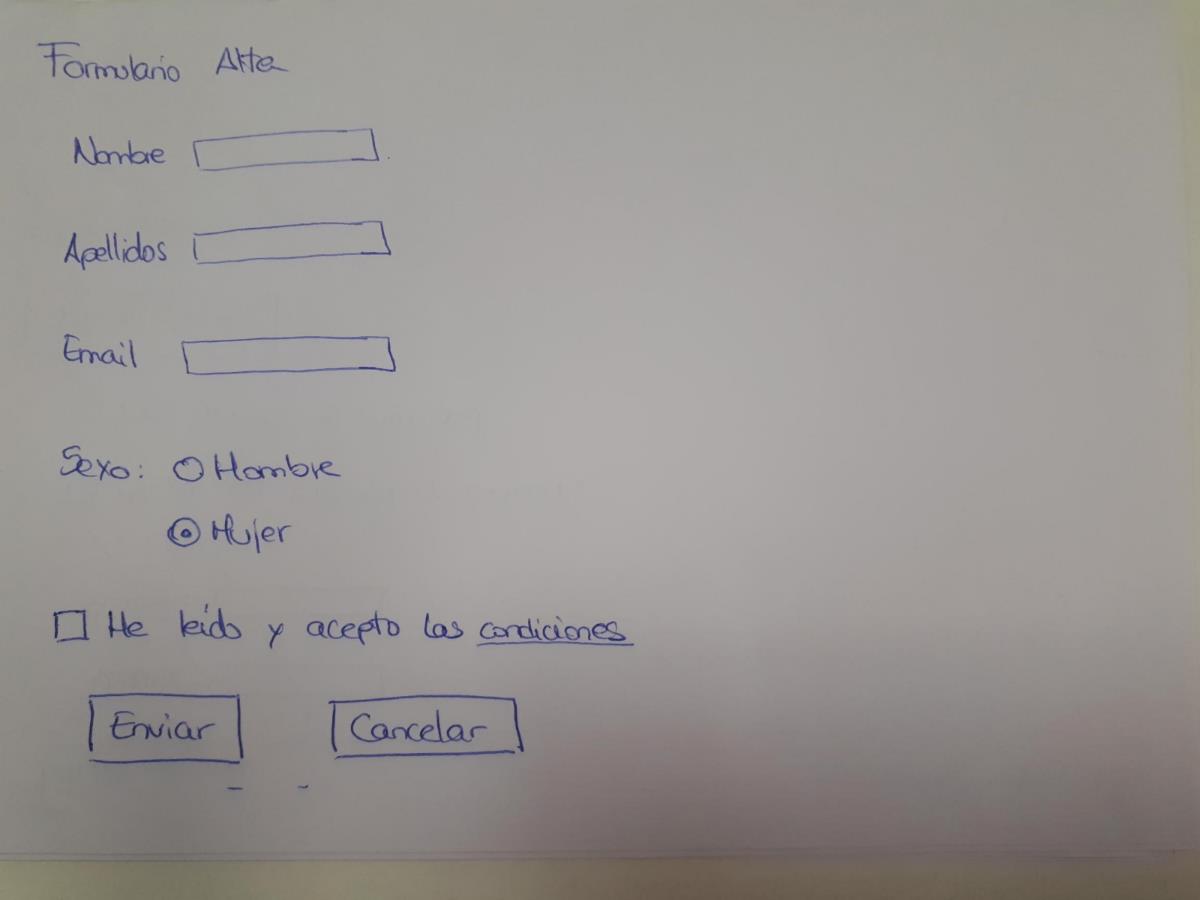 Formulario Alta
Nombre
Apellidos
Email
Sexo: Hombre
Mujer
He leído y acepto las condiciones
Enviar Cancelar